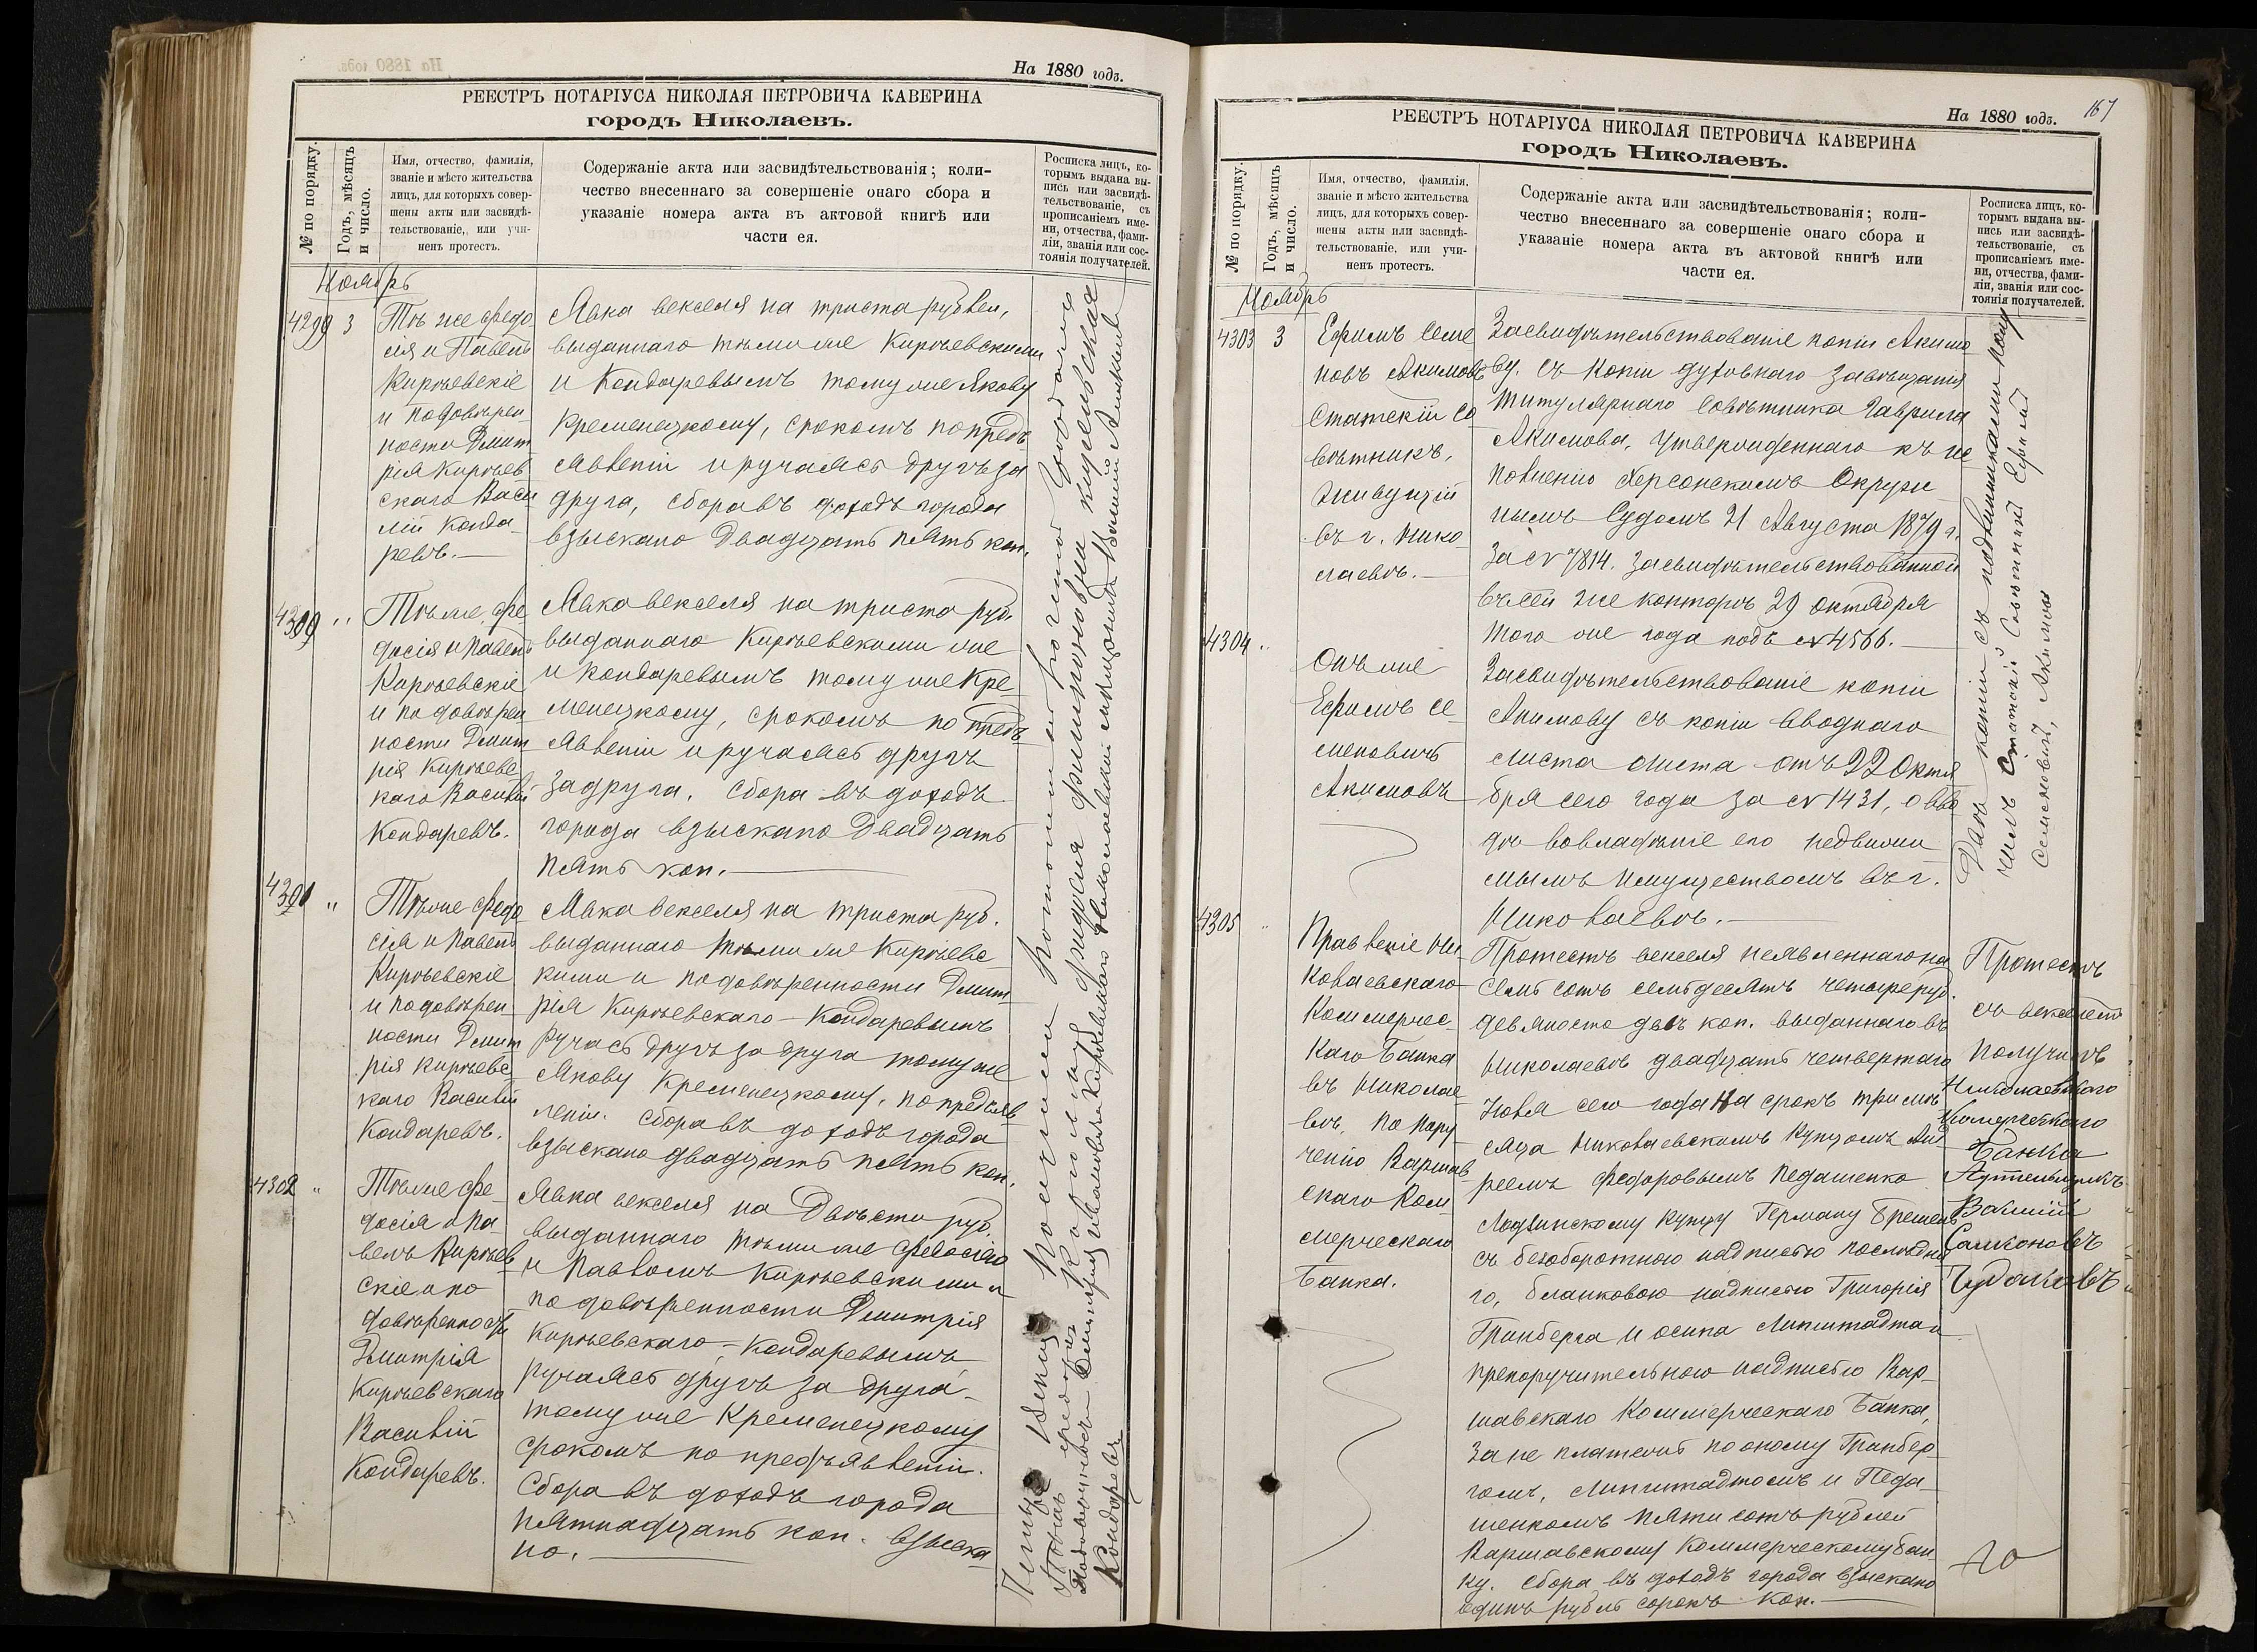 На 1880 годъ.
РЕЕСТРЪ НОТАРІУСА НИКОЛАЯ ПЕТРОВИЧА КАВЕРИНА
городъ Николаевъ.
№ по порядку.
Годъ, мѣсяцъ
и число.
Имя, отчество, фамилія,
званіе и мѣсто жительства
лицъ, для которыхъ совер-
шены акты или засвидѣ-
тельствованіе, или учи-
ненъ протестъ.
Содержаніе акта или засвидѣтельствованія; коли-
чество внесеннаго за совершеніе онаго сбора и
указаніе номера акта въ актовой книгѣ или
части ея.
Росписка лицъ, ко-
торымъ выдана вы-
пись или засвидѣ-
тельствованіе, съ
прописаніемъ име-
ни, отчества, фами-
ліи, званія или сос-
тоянія получателей.
Ноябрь
4299 3
Тѣ же Федо
сія и Павелъ
Кирѣевскіе
и по довѣрен
ности Дмит
рія Кирѣев
скаго Васи
лій Конда
ревъ.—
Явка векселя на триста рублей,
выданнаго тѣми же Кирѣевскими
и Кондаревымъ тому же Якову
Кременецкому, срокомъ по предъ
явленіи и ручаясь другъ за
друга, сбора въ доходъ города
взыскано двадцать пять коп.
4300 "
Тѣ же, Фе
досія и Павелъ
Кирѣевскіе
и по довѣрен
ности Дмит
рія Кирѣевс
каго Василій
Кондаревъ.
Явка векселя на триста руб.
выданнаго Кирѣевскими же
и Кондаревымъ тому же Кре
менецкому, срокомъ по предъ
явленіи и ручаясь другъ
за друга. Сбора въ доходъ
города взыскано двадцать
пять коп.—
4301 "
Тѣ же Федо
сія и Павелъ
Кирѣевскіе
и по довѣрен
ности Дмит
рія Кирѣевс
каго Василій
Кондаревъ.
Явка векселя на триста руб.
выданнаго тѣми же Кирѣевс
кими и по довѣренности Дмит
рія Кирѣевскаго — Кондаревымъ
ручаясь другъ за друга тому же
Якову Кременецкому, по предъяв
леніи. Сбора въ доходъ города
взыскано двадцать пять коп.
4302 "
Тѣ же Фе-
досія и Па-
велъ Кирѣев
скіе и по
довѣренности
Дмитрія
Кирѣевскаго
Василій
Кондаревъ.
Явка векселя на двѣсти руб.
выданнаго тѣми же Федосіею
и Павломъ Кирѣевскими и
по довѣренности Дмитрія
Кирѣевскаго — Кондаревымъ
ручаясь другъ за друга -
тому же Кременецкому
срокомъ по предъявленіи.
Сбора въ доходъ города
пятнадцать коп. взыска
но.—
Кондаревъ
На 1880 годъ.
167
РЕЕСТРЪ НОТАРІУСА НИКОЛАЯ ПЕТРОВИЧА КАВЕРИНА
городъ Николаевъ.
№ по порядку.
Годъ, мѣсяцъ
и число.
Имя, отчество, фамилія,
званіе и мѣсто жительства
лицъ, для которыхъ совер-
шены акты или засвидѣ-
тельствованіе, или учи-
ненъ протестъ.
Содержаніе акта или засвидѣтельствованія; коли-
чество внесеннаго за совершеніе онаго сбора и
указаніе номера акта въ актовой книгѣ или
части ея.
Росписка лицъ, ко-
торымъ выдана вы-
пись или засвидѣ-
тельствованіе, съ
прописаніемъ име-
ни, отчества, фами-
ліи, званія или сос-
тоянія получателей.
Ноябрь
4303 3
Ефимъ Семе
новъ Акимовъ
Статскій Со
вѣтникъ,
живущій
въ г. Нико
лаевѣ.—
Засвидѣтельствованіе копіи Акимо
ву. съ копіи духовнаго завѣщанія
титулярнаго совѣтника Гаврила
Акимова, утвержденнаго къ ис
полненію Херсонскимъ Окруж
нымъ Судомъ 21 Августа 1879 г.
за № 7814. засвидѣтельствованной
въ сей же конторѣ 29 октября
того же года подъ № 4566.—
4304 "
Онъ же
Ефимъ Се-
меновичъ
Акимовъ
Засвидѣтельствованіе копіи
Акимову съ копіи вводнаго
листа листа отъ 22 Октя
бря сего года за № 1431, о вво
дѣ во владѣніе его недвижи
мымъ имуществомъ въ г.
Николаевѣ.—
копіи съ подлинниками полу
чилъ Статскій Совѣтникъ Ефимъ
Семеновичъ Акимовъ
4305 "
Правленіе Ни-
колаевскаго
Коммерчес-
каго Банка
въ Николае
вѣ, по пору
ченію Варшав
скаго Ком
мерческаго
Банка.
Протестъ векселя неявленнаго на
семь сотъ семьдесятъ четыре руб.
девяносто двѣ коп. выданнаго въ
Николаевѣ двадцать четвертаго
Іюля сего года на срокъ три мѣ
сяца Николаевскимъ купцомъ Анд
реемъ Федоровымъ Педашенко
Лодзинскому купцу Герману Брешелю
съ безоборотною надписью послѣдня
го, бланковою надписью Григорія
Гринберга и Осипа Липштадта и
препоручительною надписью Вар-
шавскаго Коммерческаго Банка,
за не платежъ по оному Гринбер-
гомъ, Липштадтомъ и Педа-
шенкомъ пяти сотъ рублей
Варшавскому Коммерческому Бан-
ку. Сбора въ доходъ города взыскано
одинъ рубль сорокъ коп.—
Протестъ
съ векселемъ
получилъ
Николаевскаго
Комерческаго
Банка
Артельщикъ
Василій
Чудаковъ